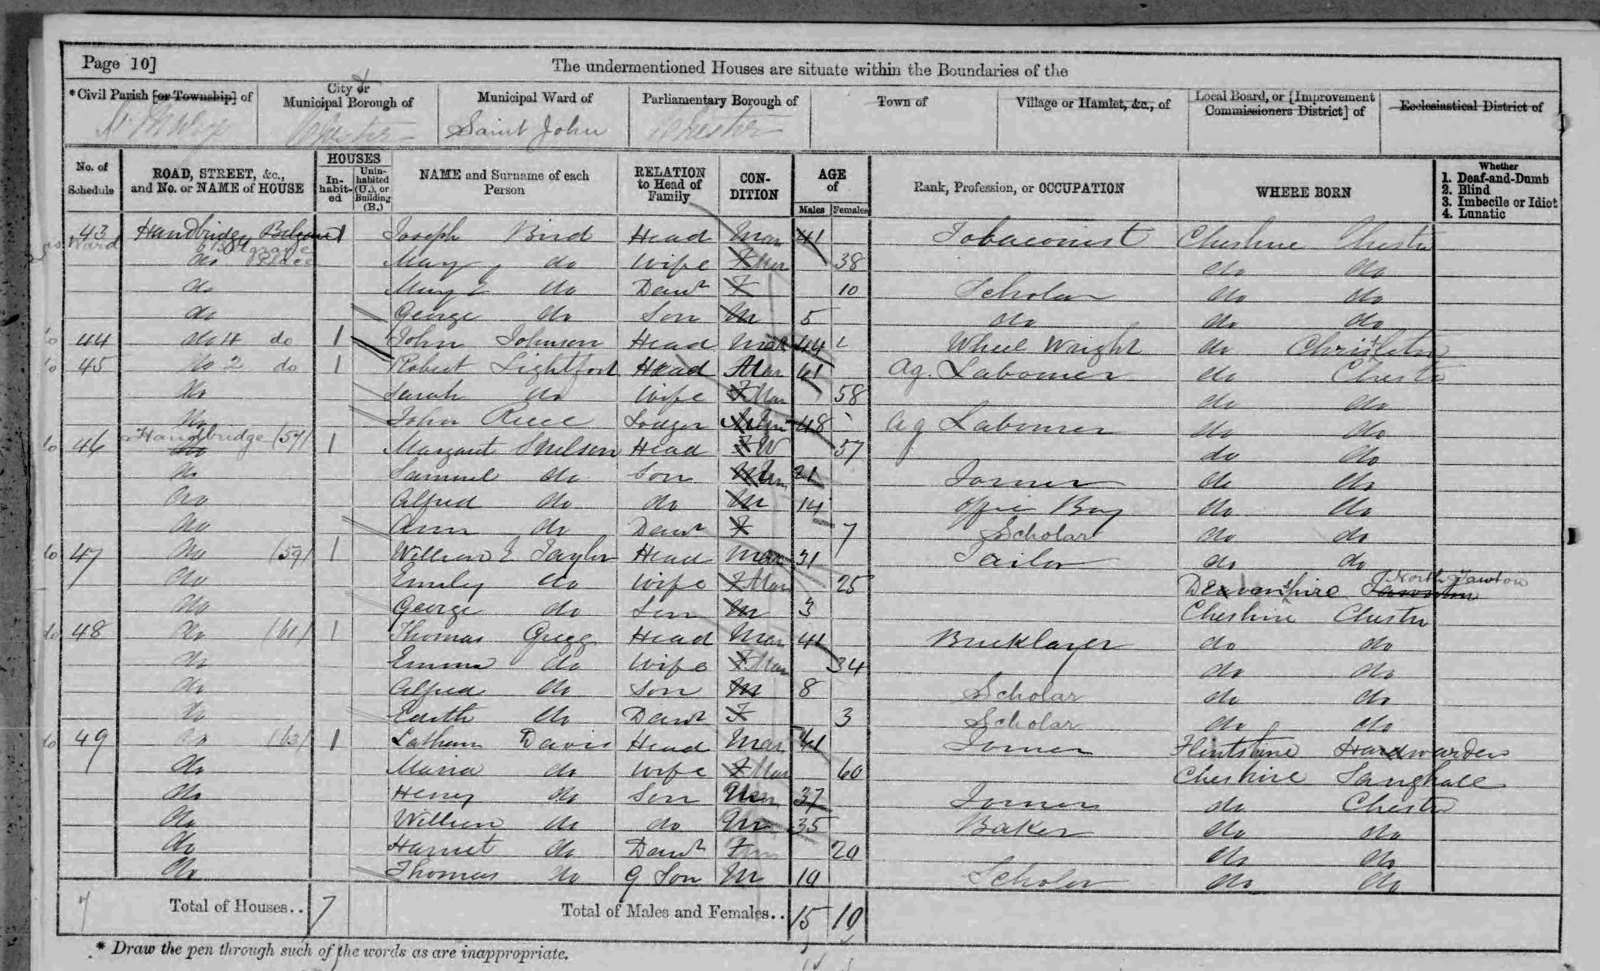 Page 10]
The undermentioned Houses are situate within the Boundaries of the
* Civil Parish [or Township] of
City or Municipal Borough of
Municipal Ward of
Parliamentary Borough of
Town of
Village or Hamlet, &c., of
Local Board, or [Improvement Commissioners District] of
Ecclesiastical District of
Chester
Saint John
Chester
No. of Schedule
ROAD, STREET, &c., and No. or NAME of HOUSE
HOUSES
In-habit-ed
Unin-habited (U.), or Building (B.)
NAME and Surname of each Person
RELATION to Head of Family
CON-DITION
AGE of
Males
Females
Rank, Profession, or OCCUPATION
WHERE BORN
Whether
1. Deaf-and-Dumb
2. Blind
3. Imbecile or Idiot
4. Lunatic
43 Handbridge 1 Joseph Bird Head Mar 41 Tobaconist Cheshire Chester
do Place Mary do Wife Mar 38 do do
do Mary E do Daur F 10 Scholar do do
do George do Son M 5 do do do
44 do 4 do 1 John Johnson Head Mar 44 Wheel Wright do Christleton
45 do 2 do 1 Robert Lightfoot Head Mar 61 Ag. Labourer do Chester
do Sarah do Wife F Mar 58 do do
do John Reece Lodger 48 Ag Labourer do do
46 Handbridge (57) 1 Margaret Snelson Head F W 57 do do
do Samuel do Son M Un 21 Joiner do do
do Alfred do do M 14 Office Boy do do
do Ann do Daur F 7 Scholar do do
47 do (59) 1 William E Taylor Head Mar 31 Tailor do do
do Emily do Wife F Mar 25 Devonshire North Tawton
do George do Son M 3 Cheshire Chester
48 do (61) 1 Thomas Gregg Head Mar 41 Bricklayer do do
do Emma do Wife F Mar 34 do do
do Alfred do Son M 8 Scholar do do
do Edith do Daur F 3 Scholar do do
49 do (63) 1 Latham Davis Head Mar Joiner Flintshire Hardwarden
do Maria do Wife F Mar 60 Cheshire Saughall
do Henry do Son Un 37 Joiner do Chester
do William do do Un 35 Baker do do
do Harriet do Daur F Un 20 do do
do Thomas do G Son M 10 Scholar do do
7 Total of Houses.. 7 Total of Males and Females.. 15 10
* Draw the pen through such of the words as are inappropriate.